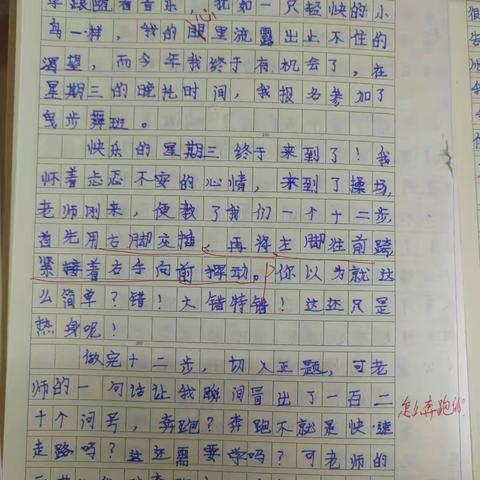 学跟随着音乐，犹如一只轻快的小
心
鸟一样，我的眼里流露出止不住的
渴望，而今年我终于有机会了，在
星期三的晚托时间，我报名参加了
曳步舞班。
快乐的星期三终于来到了！我
怀着忐忑不安的心情，来到了操场，
老师刚来，便教了我们一个十二步，
首先用右脚交插，再将左脚往前踏
紧接着右手向前挥动。你以为就这
么简单？错！大错特错！这还只是
热身呢！
做完十二步，切入正题，可老
师的一句话让我瞬间冒出了一百二
十个问号，奔跑？奔跑不就是快速
怎么奔跑的？
走路吗？这还需要学吗？可老师的